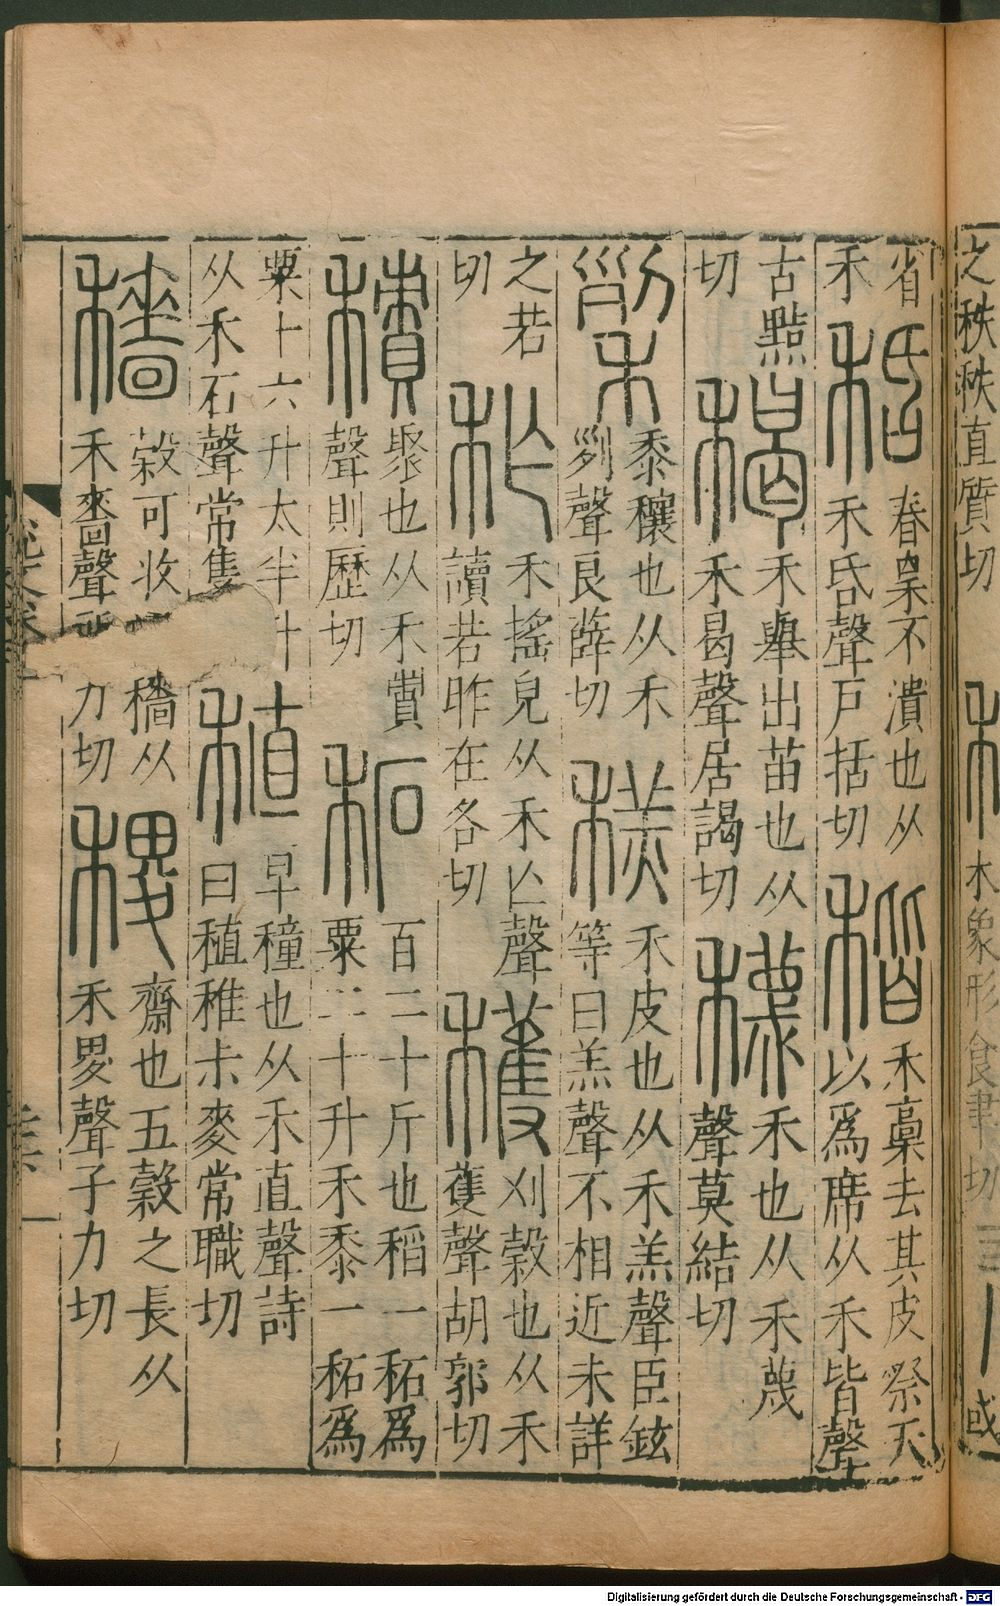 之秩秩直質切 木象形食聿切 或
省 𥞵 舂㮃不潰也从
禾 禾昏聲戶括切 稭 禾稾去其皮祭天
以爲席从禾皆聲
古黠切 稭 禾舉出苗也从
禾曷聲居謁切 穖 禾也从禾蔑
聲莫結切
𥠽 黍穰也从禾
𠛱聲良薛切 䅁 禾皮也从禾羔聲臣鉉
等曰羔聲不相近未詳
之若切 秨 禾搖皃从禾乍聲
讀若昨在各切 穫 刈穀也从禾
蒦聲胡郭切
積 聚也从禾𧶠
聲則歷切 䄷 百二十斤也稻一䄷爲
粟二十升禾黍一䄷爲
粟十六升太半升
从禾石聲常隻 稙 早穜也从禾直聲詩
曰稙稚尗麥常職切
穡 榖可收 穡从
禾嗇聲 力切 稷 齋也五穀之長从
禾畟聲子力切
Digitalisierung gefördert durch die Deutsche Forschungsgemeinschaft - DFG